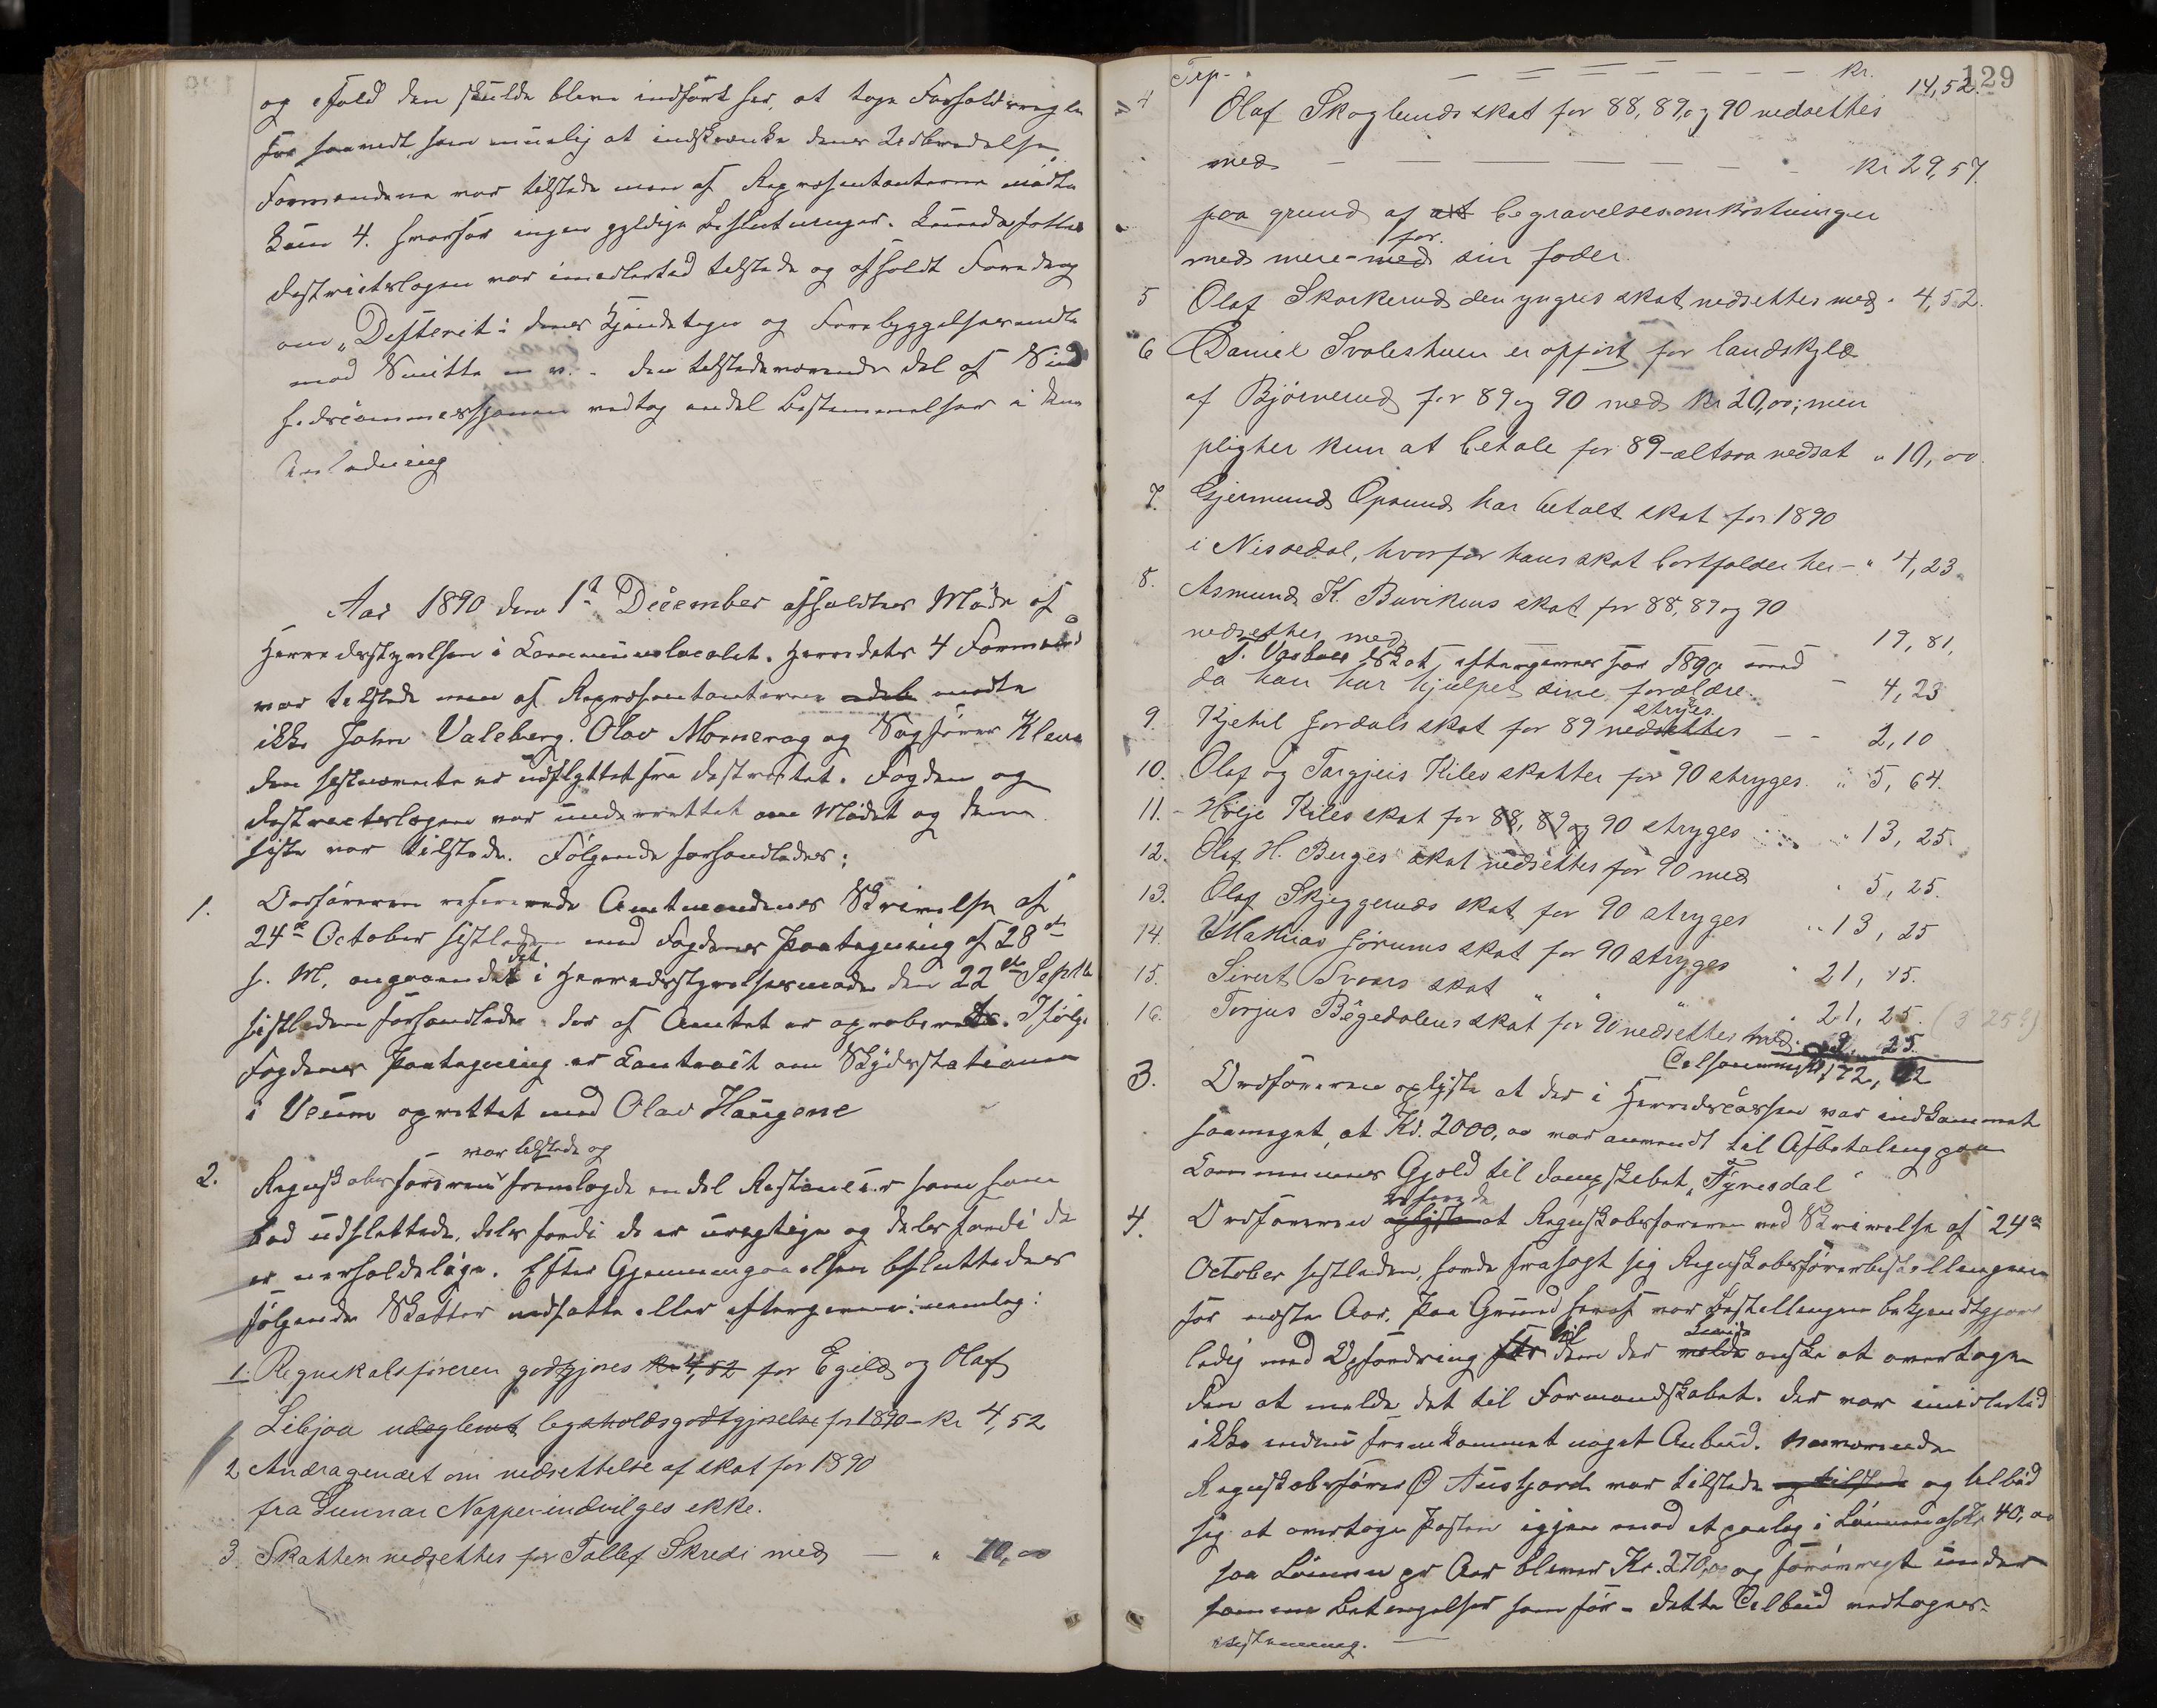 og ifald den skulde bleve indført her, at tage Forholdsregler
for saavidt som muelig at indskrænke denes Udbredelse.
Formændene var tilstede men af Repræsentanterne mødte
kun 4. hvorfor ingen gyldige Beslutninger kunde fattes
Destrictslægen var imidlertid tilstede og afholdt Foredrag
om „Defterit: denes Kjendetegn og Forebyggelsesmidler
mod Smitte m. v. - den tilstedeværende del af Sund
hedscommissjonen vedtog endel Bestemmelser i den
Anledning
Aar 1890 den 1ste December afholdtes Møde af
Herredsstyrelsen i Communelocalet. Herredets 4 Formænd
var tilstede men af Repræsentanterne mødte
ikke John Valeberg. Olav Momerag og Sagfører Kleve
den sistnævnte er udflyttet fra destrictet. Fogden og
destrictslægen var underrettet om Mødet og denne
siste var tilstede. Følgende forhandledes:
1. Ordføreren refererede Amtmandens Skrivelse af
24de October sistleden med Fogdens Paategning af 28de
s. M. angaaende det i Herredsstyrelsesmøde den 22de Septb
sistleden forhandlede der af Amtet er aproberet. Ifølge
Fogdens Paategning er Contract om Skydsstationen
i Veum oprettet med Olav Haugene
var tilstede og
2. Regnskabsføreren fremlagde endel Restancer som han
bad udslettede, dels fordi de er uregtige og dels fordi de
er uerholdelige. Efter Gjennemgaaelsen besluttedes
følgende Skatter nedsatte eller eftergivne: nemlig:
1. Regnskabsføreren godtgjøres kr 4,52 for Egild og Olaf
Libjaa udeglemt legsholdsgodtgjørelse for 1890 - Kr 4,52
2 Andragendet om nedsettelse af skat for 1890
fra Gunnar Napper indvilges ikke.
3 Skatten nedsettes for Tallef Skredi med — „ 10,00
129
Trp. - — — — — — - - - kr. 14,52.
4 Olaf Skoglunds skat for 88, 89, og 90 nedsettes
med — — — — — — - - kr 29,57.
paa grund af begravelsesomkostninger
med mere - med for sin fader.
5 Olaf Skarkerud den yngres skat nedsettes med „ 4,52.
6 Daniel Svaleshuen er opført for landskyld
af Bjørnerud for 89 og 90 med kr 20,00; men
pligter kun at betale for 89 - altsaa nedsat „ 10,00.
7. Gjermund Opsund har betalt skat for 1890
i Nissedal, hvorfor hans skat bortfalder her - „ 4,23.
8. Asmund K. Buvikens skat for 88, 89 og 90
nedsettes med 19,81.
T. skat eftergives for 1890 med
da han har hjulpet sine forældre. — 4,23
stryges.
9. Kjetil Jordals skat for 89 nedsettes — - 2,10
10. Olaf og Targjeis Kiles skatter for 90 stryges. „ 5,64.
11. - Hølje Kiles skat for 88, 89 og 90 stryges „ 13,25.
12. Olaf H. Berges skat nedsettes for 90 med „ 5,25.
13. Olaf Skjeggeruds skat for 90 stryges „ 13,25
14. Mathias Jørums skat for 90 stryges „ 21,15.
15. Sivert Svaers skat „ „ „ „ 21,25. (3 25?)
16. Torjus Bøgedalens skat for 90 nedsettes med. 25.
Tilsammen Kr 172,
3. Ordføreren oplyste at der i Herredscassen var indkommet
saameget, at Kr. 2000,00 var anvendt til Afbetaling paa
Communens Gjæld til dampskibet „Fyresdal“
refererede
4. Ordføreren oplyste at Regnskabsføreren ved Skrivelse af 24de
October sistleden, havde frasagt sig Regnskabsførerbestillingen
for neste Aar. Paa Grund heraf var Bestillingen bekjendtgjort
ledig med Opfordring til dem der melde ønske at overtage
den at melde det til Formandskabet. der var imidlertid
ikke endnu fremkommet noget Anbud. Nuværende
Regnskabsfører Ø Austjord var tilstede og tilstede og tilbød
sig at overtage Posten igjen mod et paalæg i Lønnen af Kr 40,00
saa Lønnen pr Aar bliver Kr. 270,00 og forøvrigt under
samme Betingelser som før - dette Tilbud vedtoges